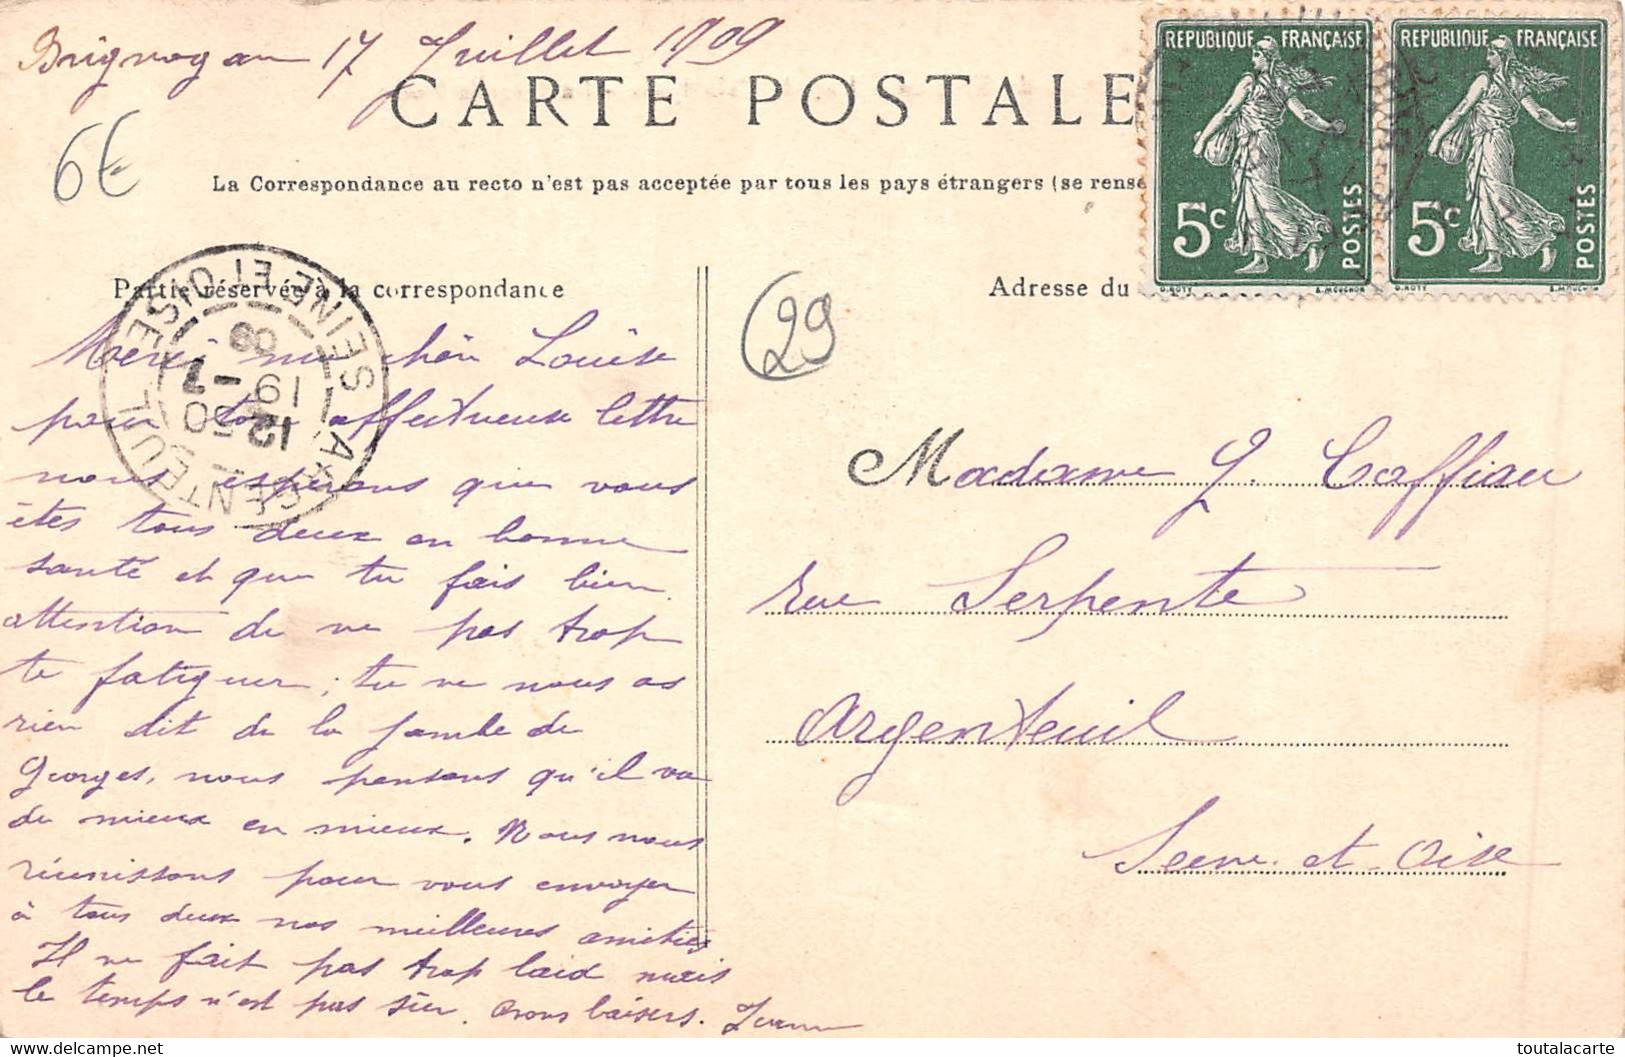 Brignogan 17 Juillet 1909
CARTE POSTALE
6€
La Correspondance au recto n'est pas acceptée par tous les pays étrangers (se rense
REPUBLIQUE FRANÇAISE
5c
POSTES
O. ROTY
E. MOUCHON
REPUBLIQUE FRANÇAISE
5c
POSTES
O. ROTY
E. MOUCHON
Partie réservée à la correspondance
Adresse du
ARGENTEUIL
SEINE-ET-OISE
12 50
19 -7
09
29
Merci ma chère Louise
pour ton affectueuse lettre
nous espérons que vous
êtes tous deux en bonne
santé et que tu fais bien
attention de ne pas trop
te fatiguer; tu ne nous as
rien dit de la jambe de
Georges, nous pensons qu'il va
de mieux en mieux. Nous nous
réunissons pour vous envoyer
à tous deux nos meilleures amitiés
Il ne fait pas trop laid mais
le temps n'est pas sûr. Bons baisers.
Madame G. Caffiau
rue Serpente
Argenteuil
Seine-et-Oise
toutalacarte